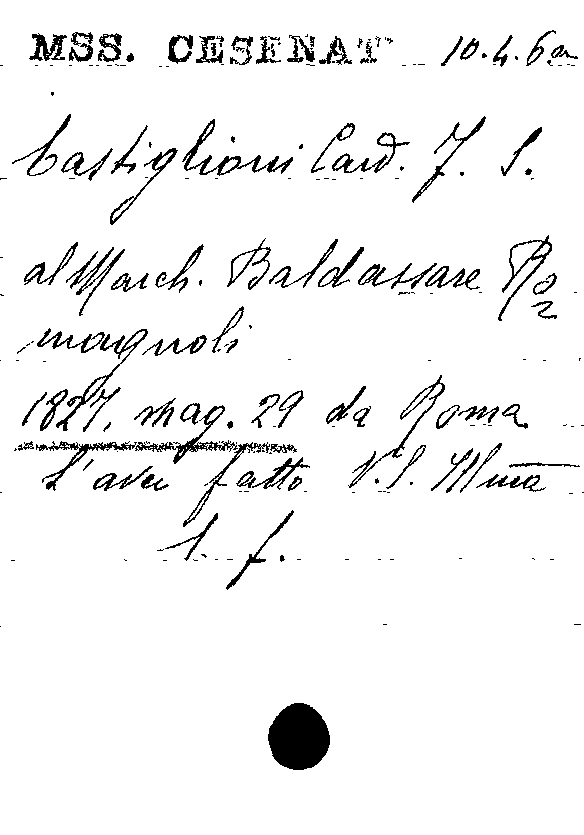 MSS. CESENAT 10.4.6
Castiglioni Card. F. S.
al March. Baldassare Ro=
magnoli
1827, mag. 29 da Roma
L'aver fatto V.S. Illma
l. f.